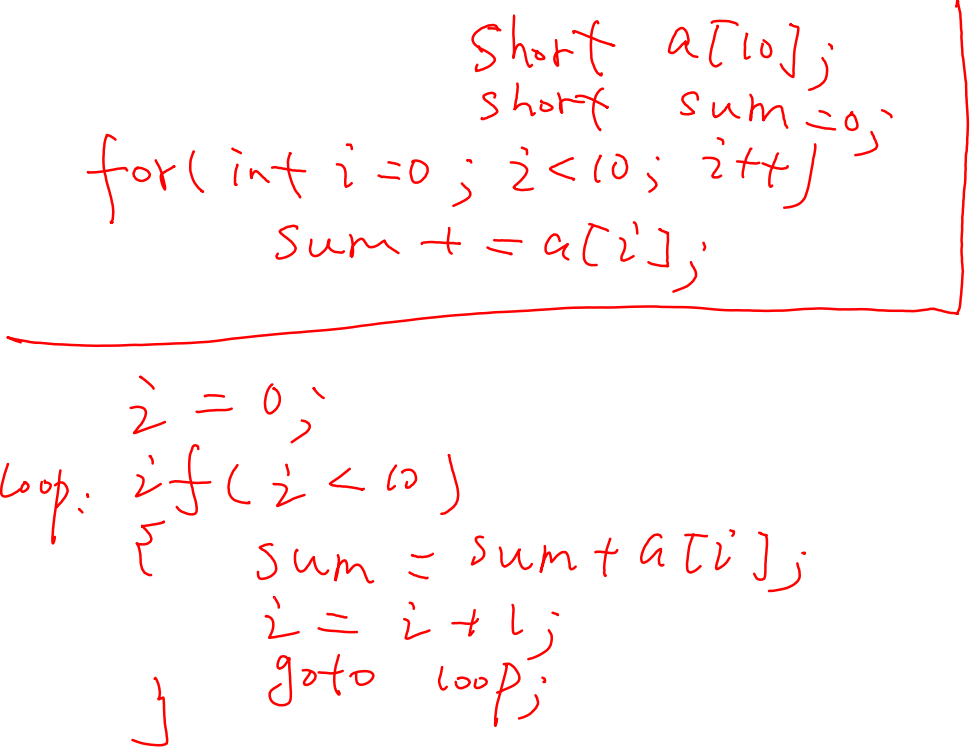 short a[10];
short sum=0;
for(int i=0; i<10; i++)
sum += a[i];
i = 0;
loop: if(i<10)
{ sum = sum+a[i];
i = i+1;
goto loop;
}